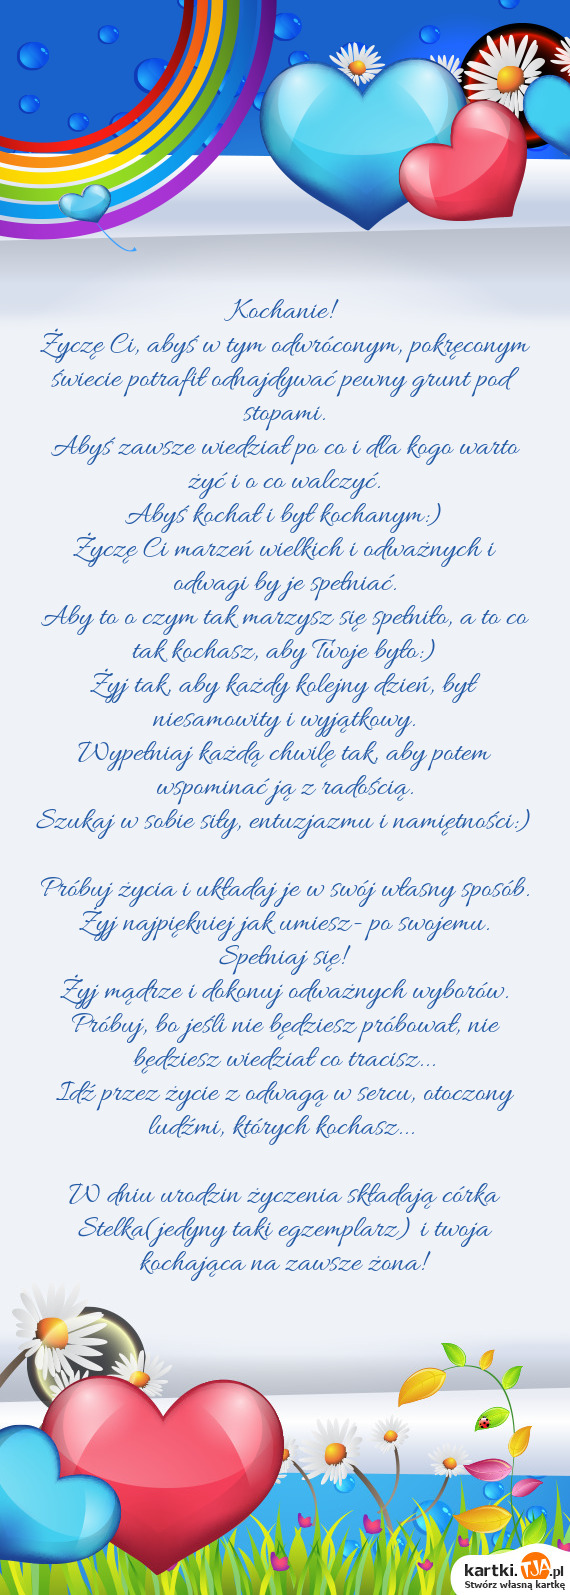 Kochanie!
Życzę Ci, abyś w tym odwróconym, pokręconym
świecie potrafił odnajdywać pewny grunt pod
stopami.
Abyś zawsze wiedział po co i dla kogo warto
żyć i o co walczyć.
Abyś kochał i był kochanym:)
Życzę Ci marzeń wielkich i odważnych i
odwagi by je spełniać.
Aby to o czym tak marzysz się spełniło, a to co
tak kochasz, aby Twoje było:)
Żyj tak, aby każdy kolejny dzień, był
niesamowity i wyjątkowy.
Wypełniaj każdą chwilę tak, aby potem
wspominać ją z radością.
Szukaj w sobie siły, entuzjazmu i namiętności:)
Próbuj życia i układaj je w swój własny sposób.
Żyj najpiękniej jak umiesz- po swojemu.
Spełniaj się!
Żyj mądrze i dokonuj odważnych wyborów.
Próbuj, bo jeśli nie będziesz próbował, nie
będziesz wiedział co tracisz...
Idź przez życie z odwagą w sercu, otoczony
ludźmi, których kochasz...
W dniu urodzin życzenia składają córka
Stelka(jedyny taki egzemplarz) i twoja
kochająca na zawsze żona!
kartki.TJA.pl
Stwórz własną kartkę